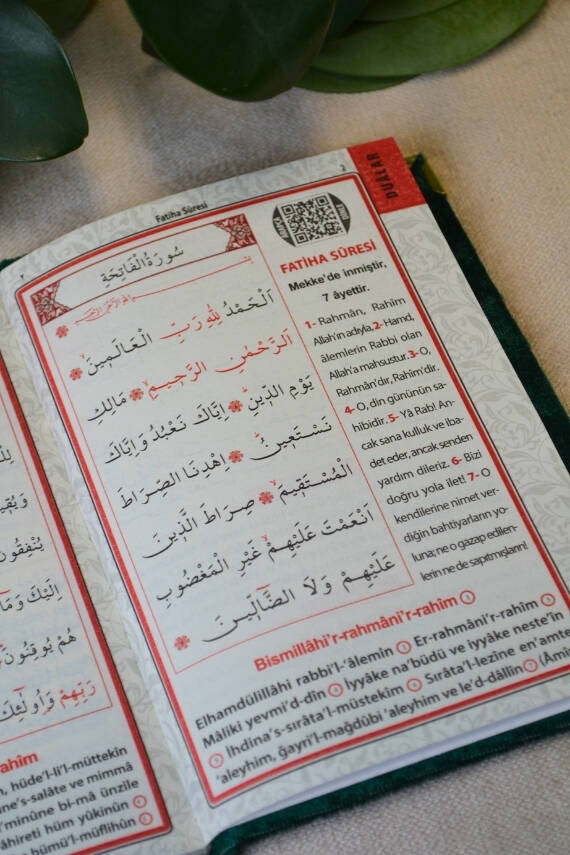 Fatiha Sûresi
2
DUALAR
سُورَةُ الْفَاتِحَةِ
اَلْحَمْدُ لِلّٰهِ رَبِّ الْعَالَمِينَۙ
اَلرَّحْمٰنِ الرَّحِيمِۙ مَالِكِ
يَوْمِ الدِّينِۜ اِيَّاكَ نَعْبُدُ وَاِيَّاكَ
نَسْتَعِينُۜ اِهْدِنَا الصِّرَاطَ
الْمُسْتَقِيمَۙ صِرَاطَ الَّذِينَ
اَنْعَمْتَ عَلَيْهِمْۙ غَيْرِ الْمَغْضُوبِ
عَلَيْهِمْ وَلَا الضَّٓالِّينَ
FATİHA SÛRESİ
Mekke'de inmiştir,
7 âyettir.
1- Rahmân, Rahîm
Allah'ın adıyla, 2- Hamd,
âlemlerin Rabbi olan
Allah'a mahsustur. 3- O,
Rahmân'dır, Rahîm'dir.
4- O, din gününün sa-
hibidir. 5- Yâ Rab! An-
cak sana kulluk ve iba-
det eder, ancak senden
yardım dileriz. 6- Bizi
doğru yola ilet! 7- O
kendilerine nimet ver-
diğin bahtiyarların yo-
luna; ne o gazap edilen-
lerin ne de sapıtmışların!
Bismillâhi'r-rahmâni'r-rahîm
Elhamdülillâhi rabbi'l-'âlemîn Er-rahmâni'r-rahîm
Mâliki yevmi'd-dîn İyyâke na'büdü ve iyyâke neste'în
İhdina's-sırâta'l-müstekîm Sırâta'l-lezîne en'amte
'aleyhim, ğayri'l-mağdûbi 'aleyhim ve le'd-dâllîn (Âmîn
وَيُقِي
يُنْفِقُونَ
اِلَيْكَ وَمَٓا
هُمْ يُوقِنُونَ
رَبِّهِمْ وَاُو۬لٰٓئِكَ
rahîm
, hüde'l-li'l-müttekîn
ne's-salâte ve mimmâ
minûne bi-mâ ünzile
âhireti hüm yûkinûn
hümü'l-müflihûn